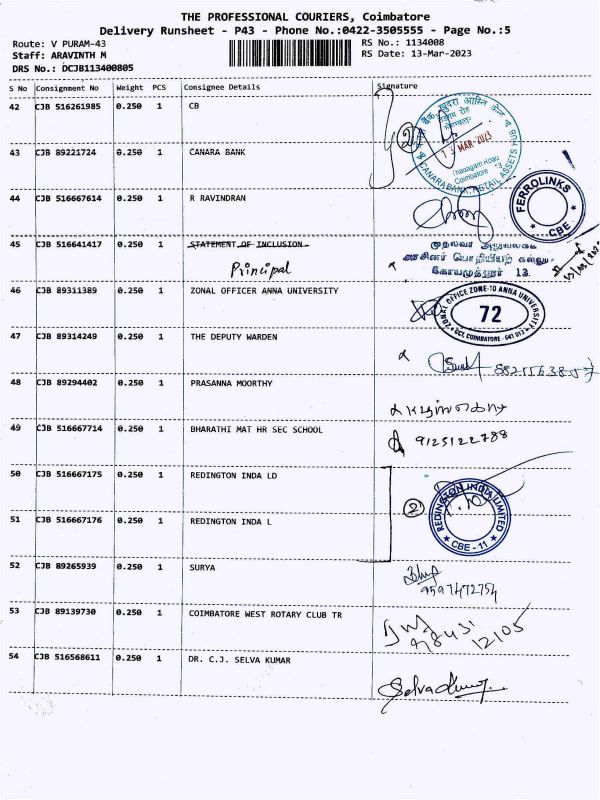 THE PROFESSIONAL COURIERS, Coimbatore
Delivery Runsheet - P43 - Phone No.:0422-3505555 - Page No.:5
Route: V PURAM-43 RS No.: 1134008
Staff: ARAVINTH M RS Date: 13-Mar-2023
DRS No.: DCJB113400805
S No Consignment No Weight PCS Consignee Details Signature
42 CJB 516261985 0.250 1 CB
43 CJB 89221724 0.250 1 CANARA BANK
2
13 MAR 2023
Thadagam Road
Coimbatore
CANARA BANK, RETAIL ASSETS HUB
44 CJB 516667614 0.250 1 R RAVINDRAN
FERROLINKS
CBE
45 CJB 516641417 0.250 1 STATEMENT OF INCLUSION
Principal
முதல்வர் அலுவலகம்
அரசினர் பொறியியற் கல்லூரி
கோயமுத்தூர் 13.
46 CJB 89311389 0.250 1 ZONAL OFFICER ANNA UNIVERSITY
ZONAL OFFICE ZONE-10 ANNA UNIVERSITY
72
GCT, COIMBATORE - 641 013
47 CJB 89314249 0.250 1 THE DEPUTY WARDEN
48 CJB 89294402 0.250 1 PRASANNA MOORTHY
49 CJB 516667714 0.250 1 BHARATHI MAT HR SEC SCHOOL
9125122788
50 CJB 516667175 0.250 1 REDINGTON INDA LD
51 CJB 516667176 0.250 1 REDINGTON INDA L
2
REDINGTON INDIA LIMITED
CBE - 11
52 CJB 89265939 0.250 1 SURYA
9597472754
53 CJB 89139730 0.250 1 COIMBATORE WEST ROTARY CLUB TR
12105
54 CJB 516568611 0.250 1 DR. C.J. SELVA KUMAR
Selvakumar